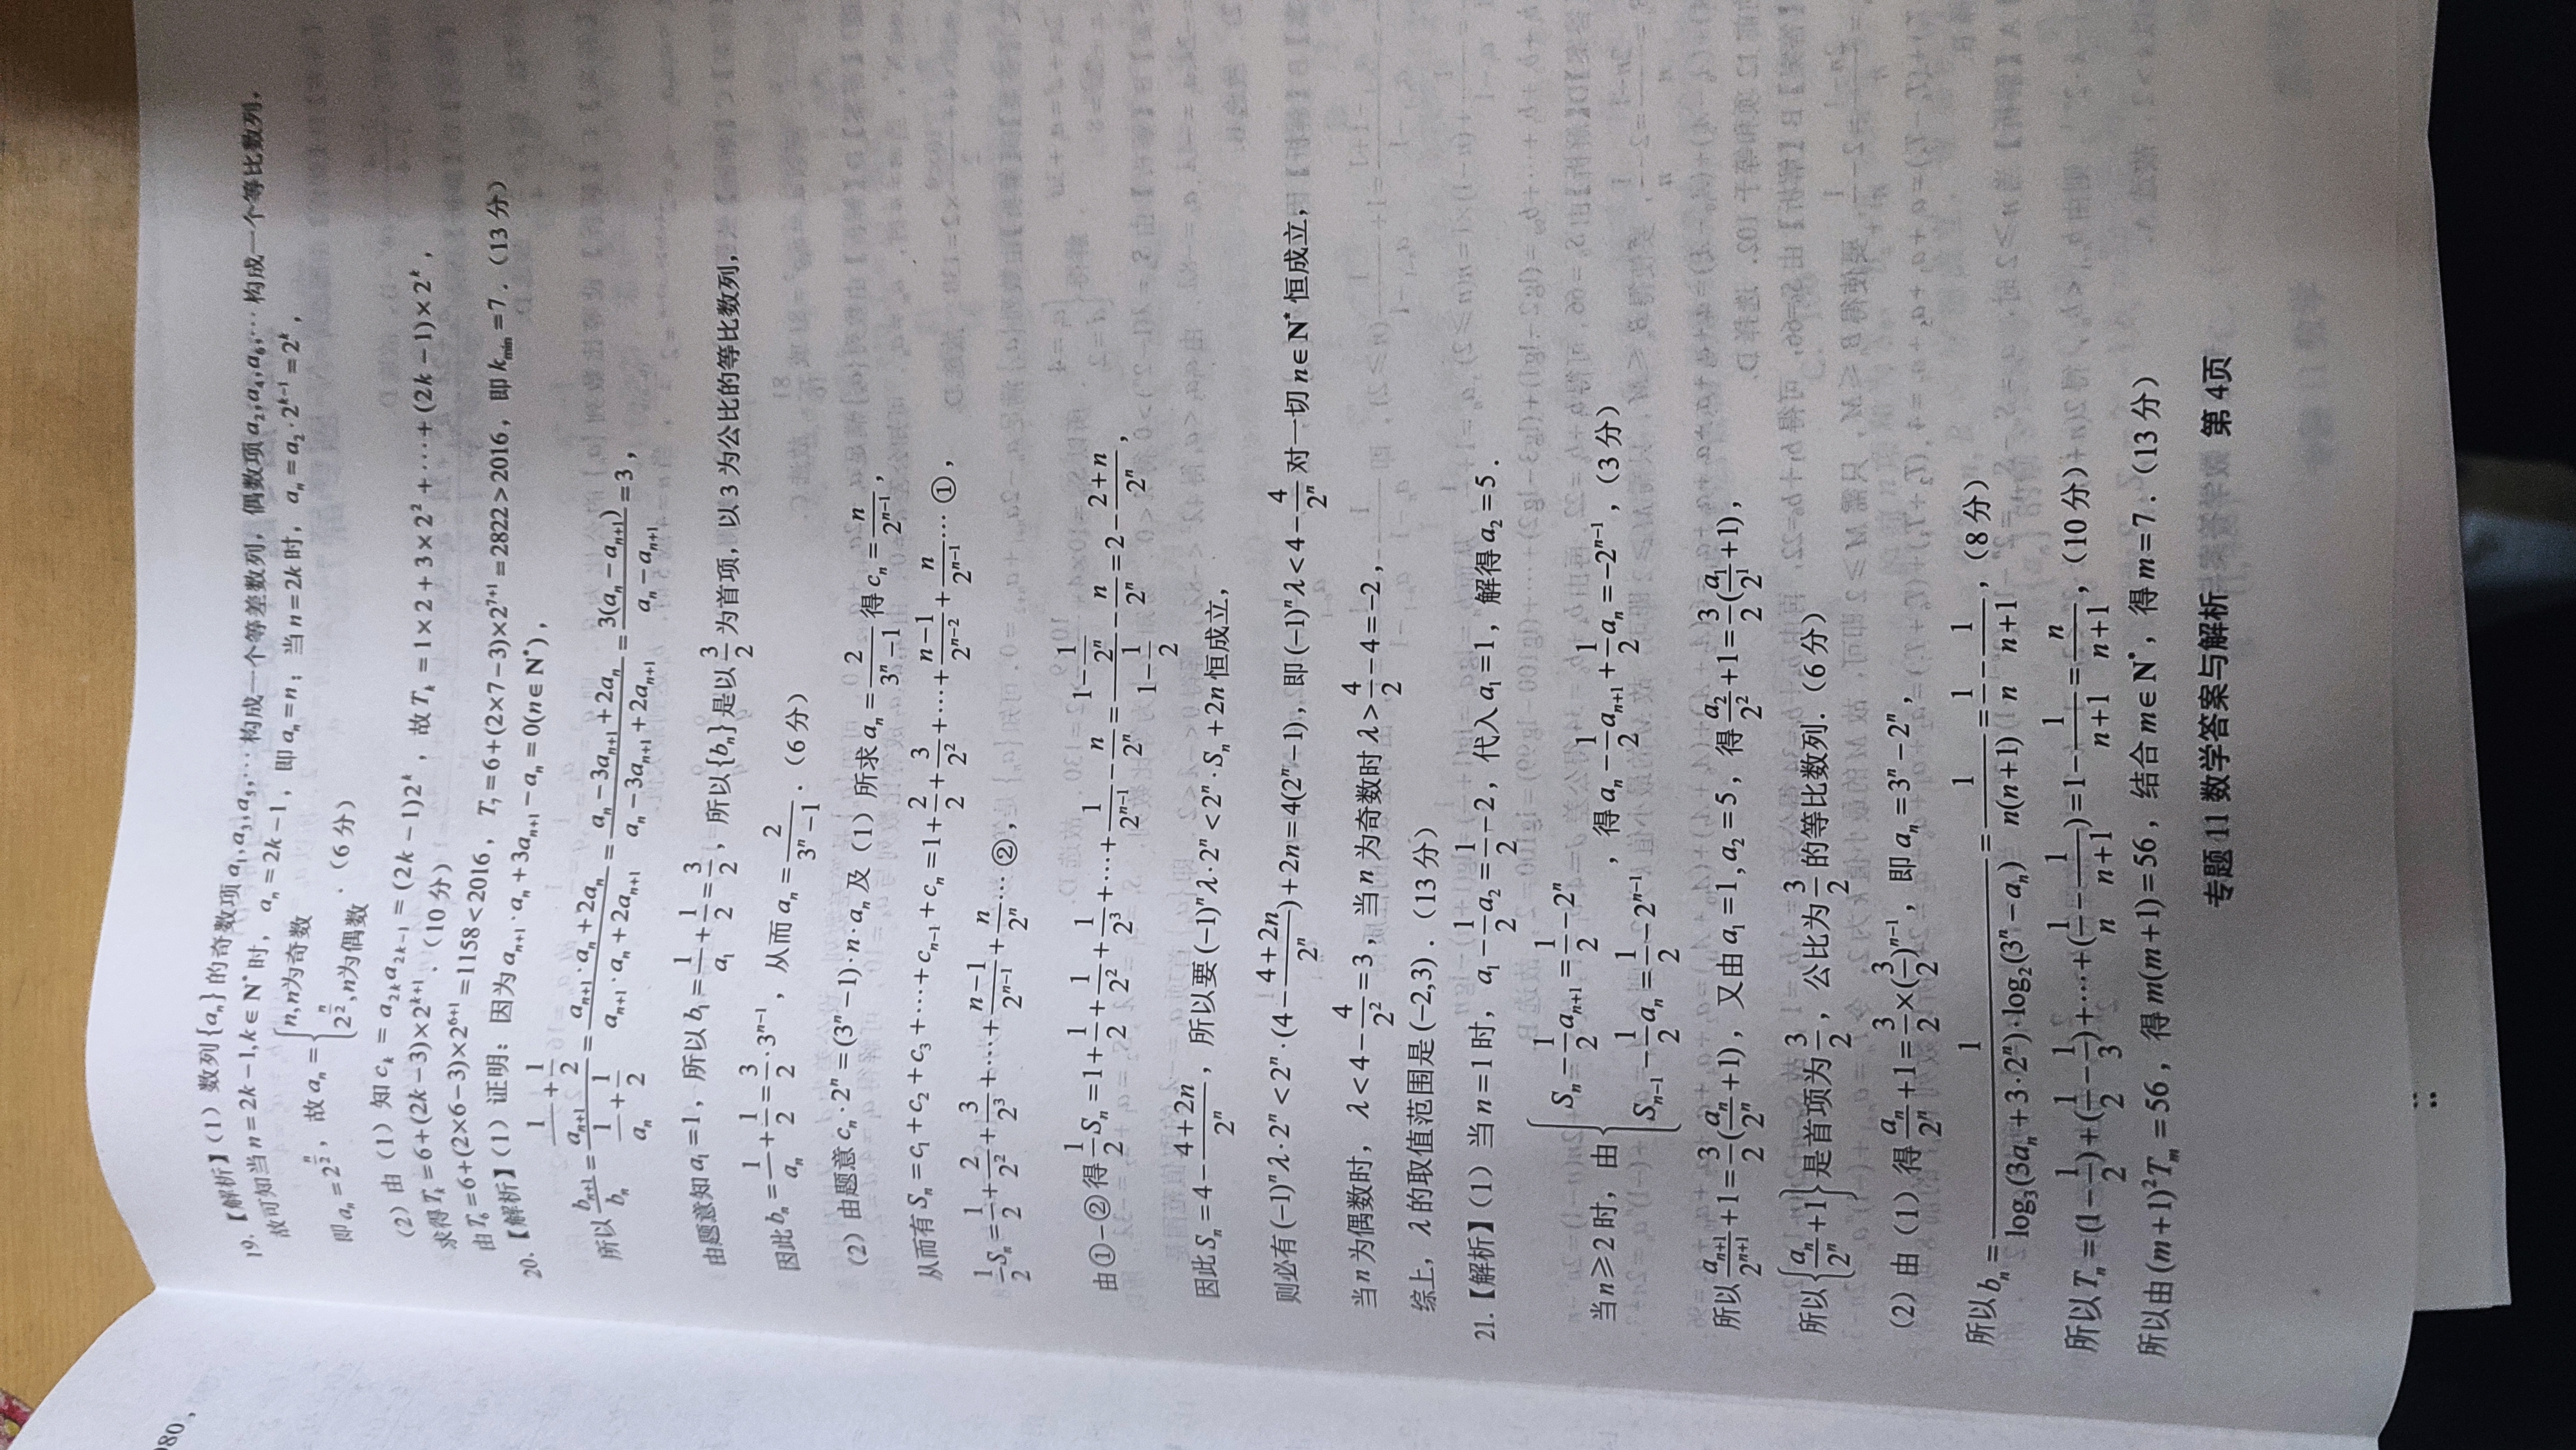 980，
19.【解析】（1）数列{aₙ}的奇数项a₁,a₃,a₅,⋯构成一个等差数列，偶数项a₂,a₄,a₆,⋯构成一个等比数列，
故可知当n=2k−1,k∈N*时，aₙ=2k−1，即aₙ=n；当n=2k时，aₙ=a₂·2^(k−1)=2^k，
即aₙ=2^(n/2)，故aₙ={n,n为奇数; 2^(n/2),n为偶数．（6分）
（2）由（1）知cₖ=a₂ₖa₂ₖ₋₁=(2k−1)2^k，故Tₖ=1×2+3×2²+⋯+(2k−1)×2^k，
求得Tₖ=6+(2k−3)×2^(k+1)．（10分）
由T₆=6+(2×6−3)×2^(6+1)=1158<2016，T₇=6+(2×7−3)×2^(7+1)=2822>2016，即k_min=7．（13分）
20.【解析】（1）证明：因为aₙ₊₁·aₙ+3aₙ₊₁−aₙ=0(n∈N*)，
所以bₙ₊₁/bₙ=(1/aₙ₊₁+1/2)/(1/aₙ+1/2)=(aₙ₊₁·aₙ+2aₙ)/(aₙ₊₁·aₙ+2aₙ₊₁)=(aₙ−3aₙ₊₁+2aₙ)/(aₙ−3aₙ₊₁+2aₙ₊₁)=3(aₙ−aₙ₊₁)/(aₙ−aₙ₊₁)=3，
由题意知a₁=1，所以b₁=1/a₁+1/2=3/2，所以{bₙ}是以3/2为首项，以3为公比的等比数列，
因此bₙ=1/aₙ+1/2=3/2·3^(n−1)，从而aₙ=2/(3^n−1)．（6分）
（2）由题意cₙ·2^n=(3^n−1)·n·aₙ及（1）所求aₙ=2/(3^n−1)得cₙ=n/2^(n−1)，
从而有Sₙ=c₁+c₂+c₃+⋯+cₙ₋₁+cₙ=1+2/2+3/2²+⋯+(n−1)/2^(n−2)+n/2^(n−1)⋯①，
1/2Sₙ=1/2+2/2²+3/2³+⋯+(n−1)/2^(n−1)+n/2^n⋯②，
由①−②得1/2Sₙ=1+1/2+1/2²+1/2³+⋯+1/2^(n−1)−n/2^n=(1−1/2^n)/(1−1/2)−n/2^n=2−(2+n)/2^n，
因此Sₙ=4−(4+2n)/2^n，所以要(−1)^nλ·2^n<2^n·Sₙ+2n恒成立，
则必有(−1)^nλ·2^n<2^n·(4−(4+2n)/2^n)+2n=4(2^n−1)，即(−1)^nλ<4−4/2^n对一切n∈N*恒成立，
当n为偶数时，λ<4−4/2²=3，当n为奇数时λ>4/2−4=−2，
综上，λ的取值范围是(−2,3)．（13分）
21.【解析】（1）当n=1时，a₁−1/2a₂=1/2−2，代入a₁=1，解得a₂=5．
当n≥2时，由{Sₙ−1/2aₙ₊₁=1/2−2^n; Sₙ₋₁−1/2aₙ=1/2−2^(n−1)，得aₙ−1/2aₙ₊₁+1/2aₙ=−2^(n−1)，（3分）
所以aₙ₊₁/2^(n+1)+1=3/2(aₙ/2^n+1)，又由a₁=1,a₂=5，得a₂/2²+1=3/2(a₁/2¹+1)，
所以{aₙ/2^n+1}是首项为3/2，公比为3/2的等比数列．（6分）
（2）由（1）得aₙ/2^n+1=3/2×(3/2)^(n−1)，即aₙ=3^n−2^n，
所以bₙ=1/(log₃(3aₙ+3·2^n)·log₂(3^n−aₙ))=1/(n(n+1))=1/n−1/(n+1)，（8分）
所以Tₙ=(1−1/2)+(1/2−1/3)+⋯+(1/n−1/(n+1))=1−1/(n+1)=n/(n+1)，（10分）
所以由(m+1)²Tₘ=56，得m(m+1)=56，结合m∈N*，得m=7．（13分）
专题11 数学答案与解析 第4页